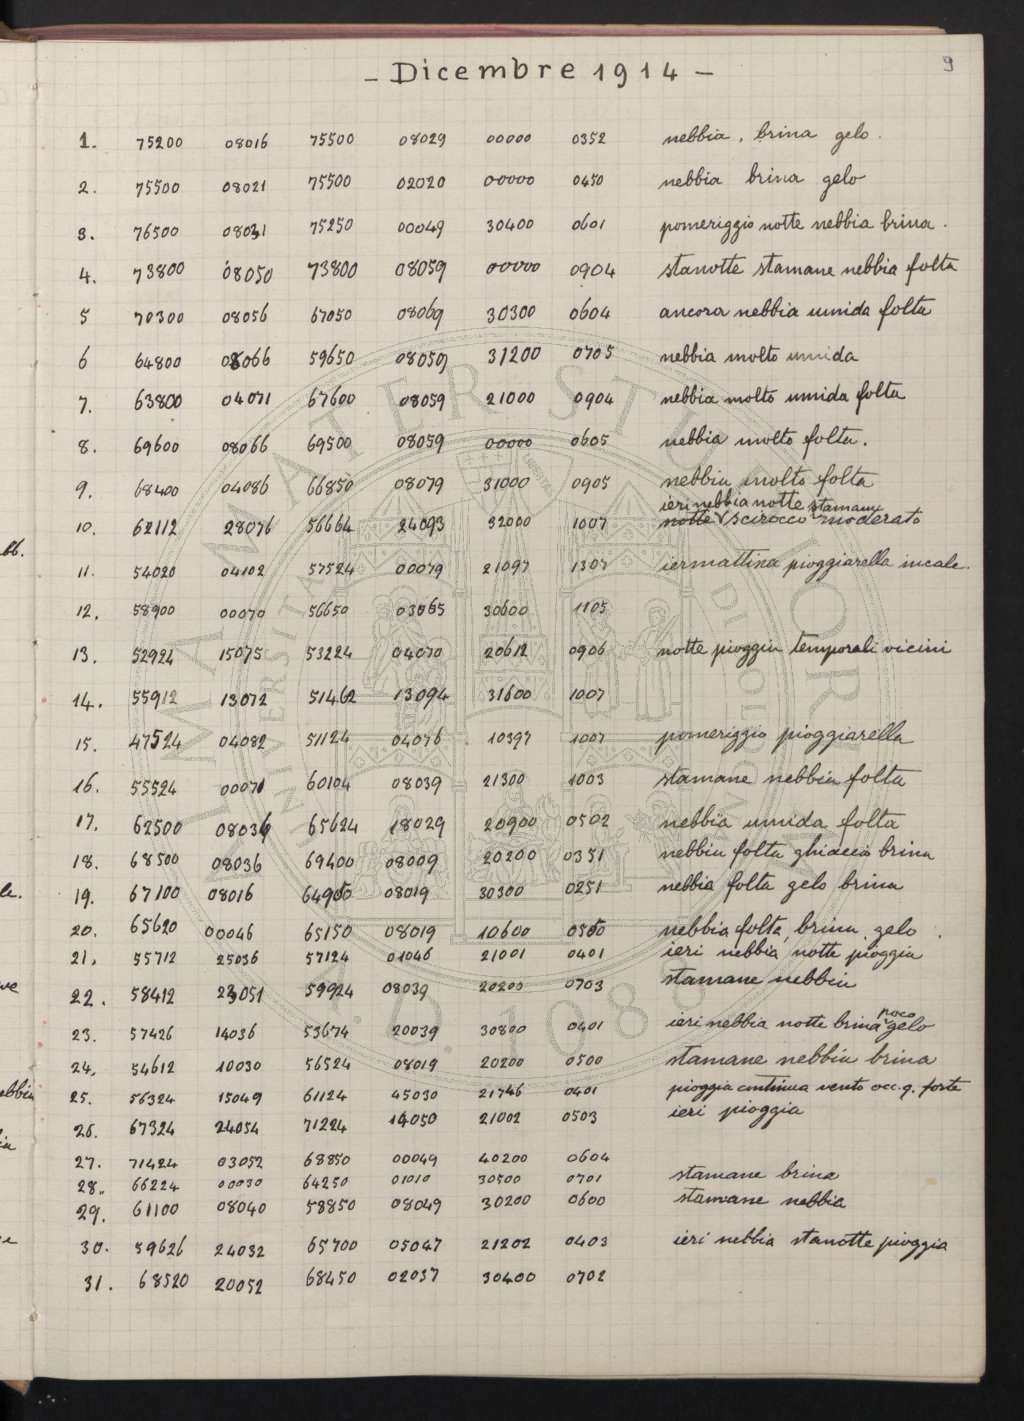 9
- Dicembre 1914 -
1. 75200 08016 75500 08029 00000 0352 nebbia, brina gelo.
2. 75500 08021 75500 02020 00000 0450 nebbia brina gelo
3. 76500 08031 75250 00049 30400 0601 pomeriggio notte nebbia brina.
4. 73800 08050 73800 08059 00000 0904 stanotte stamane nebbia folta
5 70300 08056 67050 08069 30300 0604 ancora nebbia umida folta
6 64800 08066 59650 08059 31200 0705 nebbia molto umida
7. 63800 04071 67600 08059 21000 0904 nebbia molto umida folta
8. 69600 08066 69500 08059 00000 0605 nebbia molto folta.
9. 68400 04086 66850 08079 31000 0905 nebbia molto folta
ieri nebbia notte stamane
10. 62112 28076 56664 24093 32000 1007 notte scirocco moderato
bb.
11. 54020 04102 57524 00079 21097 1307 iermattina pioggiarella incale.
12. 58900 00070 56650 03065 30600 1105
13. 52924 15075 53224 04070 20612 0906 notte pioggia temporali vicini
14. 55912 13072 51462 13094 31600 1007
15. 47524 04082 51124 04076 10397 1007 pomeriggio pioggiarella
16. 55524 00071 60104 08039 21300 1003 stamane nebbia folta
17. 62500 08036 65624 18029 20900 0502 nebbia umida folta
18. 68500 08036 69400 08009 20200 0351 nebbia folta ghiaccio brina
19. 67100 08016 64950 08019 30300 0251 nebbia folta gelo brina
20. 65620 00046 65150 08019 10600 0500 nebbia folta, brina, gelo.
21. 55712 25036 57124 01046 21001 0401 ieri nebbia, notte pioggia
22. 58412 23051 59924 08039 20200 0703 stamane nebbia
poco
23. 57426 14036 53674 20039 30800 0401 ieri nebbia notte brina gelo
24. 54612 10030 56524 08019 20200 0500 stamane nebbia brina
25. 56324 15049 61124 45030 21746 0401 pioggia continua vento occ. q. forte
26. 67324 24054 71224 14050 21002 0503 ieri pioggia
27. 71424 03052 68850 00049 40200 0604
28. 66224 00030 64250 01010 30500 0701 stamane brina
29. 61100 08040 58850 08049 30200 0600 stamane nebbia
30. 59626 24032 65700 05047 21202 0403 ieri nebbia stanotte pioggia
31. 68520 20052 68450 02037 30400 0702
ALMA MATER STUDIORUM
A.D. 1088